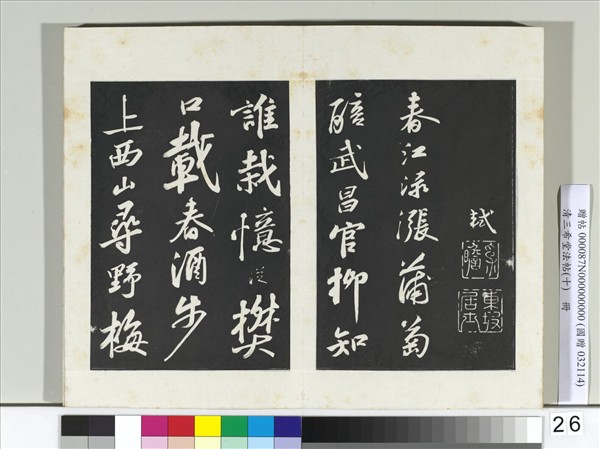 軾
東坡居士
春江淥漲蒲萄
醅武昌官柳知
誰栽憶從樊
口載春酒步
上西山尋野梅
贈帖 000087N000000000 (國贈 032114)
清三希堂法帖(十) 冊
26